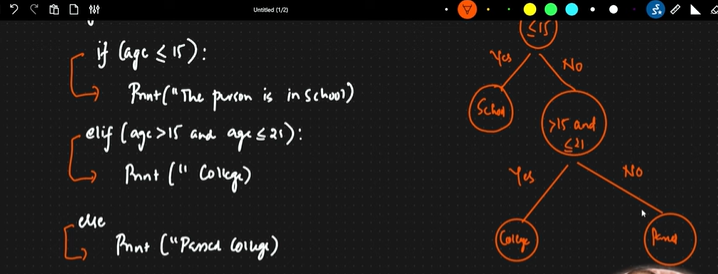 Untitled (1/2)
if (age ≤ 15):
Print("The person is in School)
elif (age >15 and age ≤ 21):
Print (" College)
else
Print ("Passed College)
≤15
Yes
No
School
>15 and
≤21
Yes
No
College
Passed